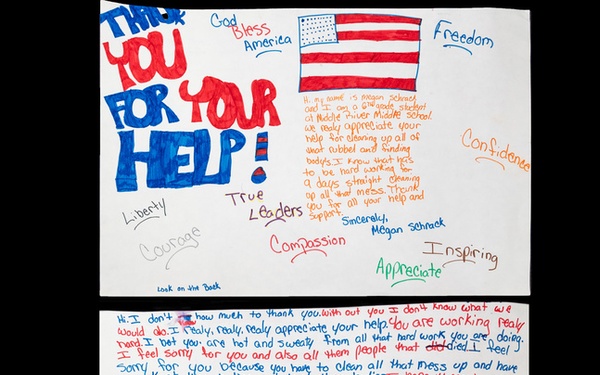 THANK
YOU
FOR YOUR
HELP!
God
Bless
America
Freedom
Hi, my name is Megan Schrack
and I am a 6th grade student
at Middle River Middle school.
we realy appreciate your
help for cleaning up all of
that rubbel and finding
body's. I know that has
to be hard working for
9 days straight cleaning
up all that mess. Thank
you for all your help and
support.
Sincerely,
Megan Schrack
Confidence
Liberty
True
Leaders
Courage
Compassion
Inspiring
Appreciate
Look on the Back
Hi. I don't how much to thank you. with out you I don't know what we
would do. I realy, realy, realy appreciate your help. You are working realy
hard. I bet you are hot and sweaty from all that hard work you are doing.
I feel sorry for you and also all them people that did died. I feel
sorry for you because you have to clean all that mess up and have